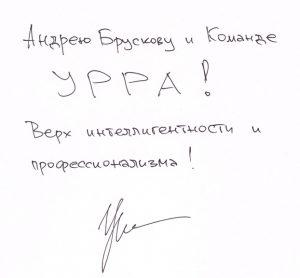 Андрею Брускову и Команде
УРРА!
Верх интеллигентности и
профессионализма!